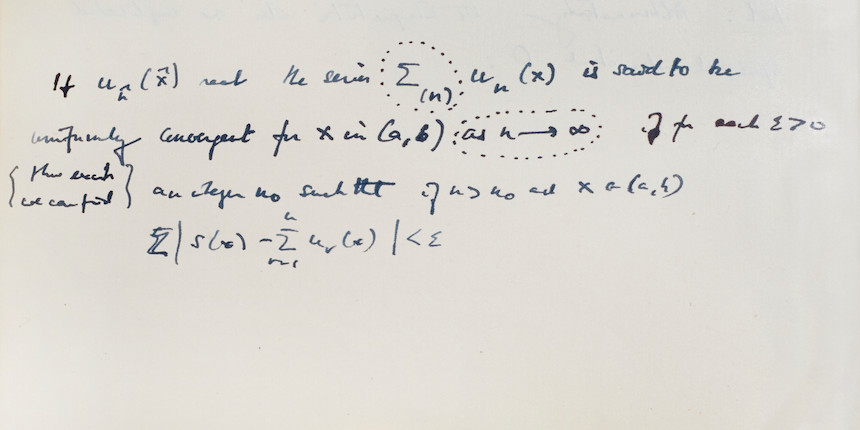 If uₙ(x) real the series Σ₍ₙ₎ uₙ(x) is said to be
uniformly convergent for x in (a,b) as n → ∞ if for each ε > 0
{there exists / we can find} an integer n₀ such that if n > n₀ and x in (a,b)
| s(x) − Σⁿᵣ₌₁ uᵣ(x) | < ε